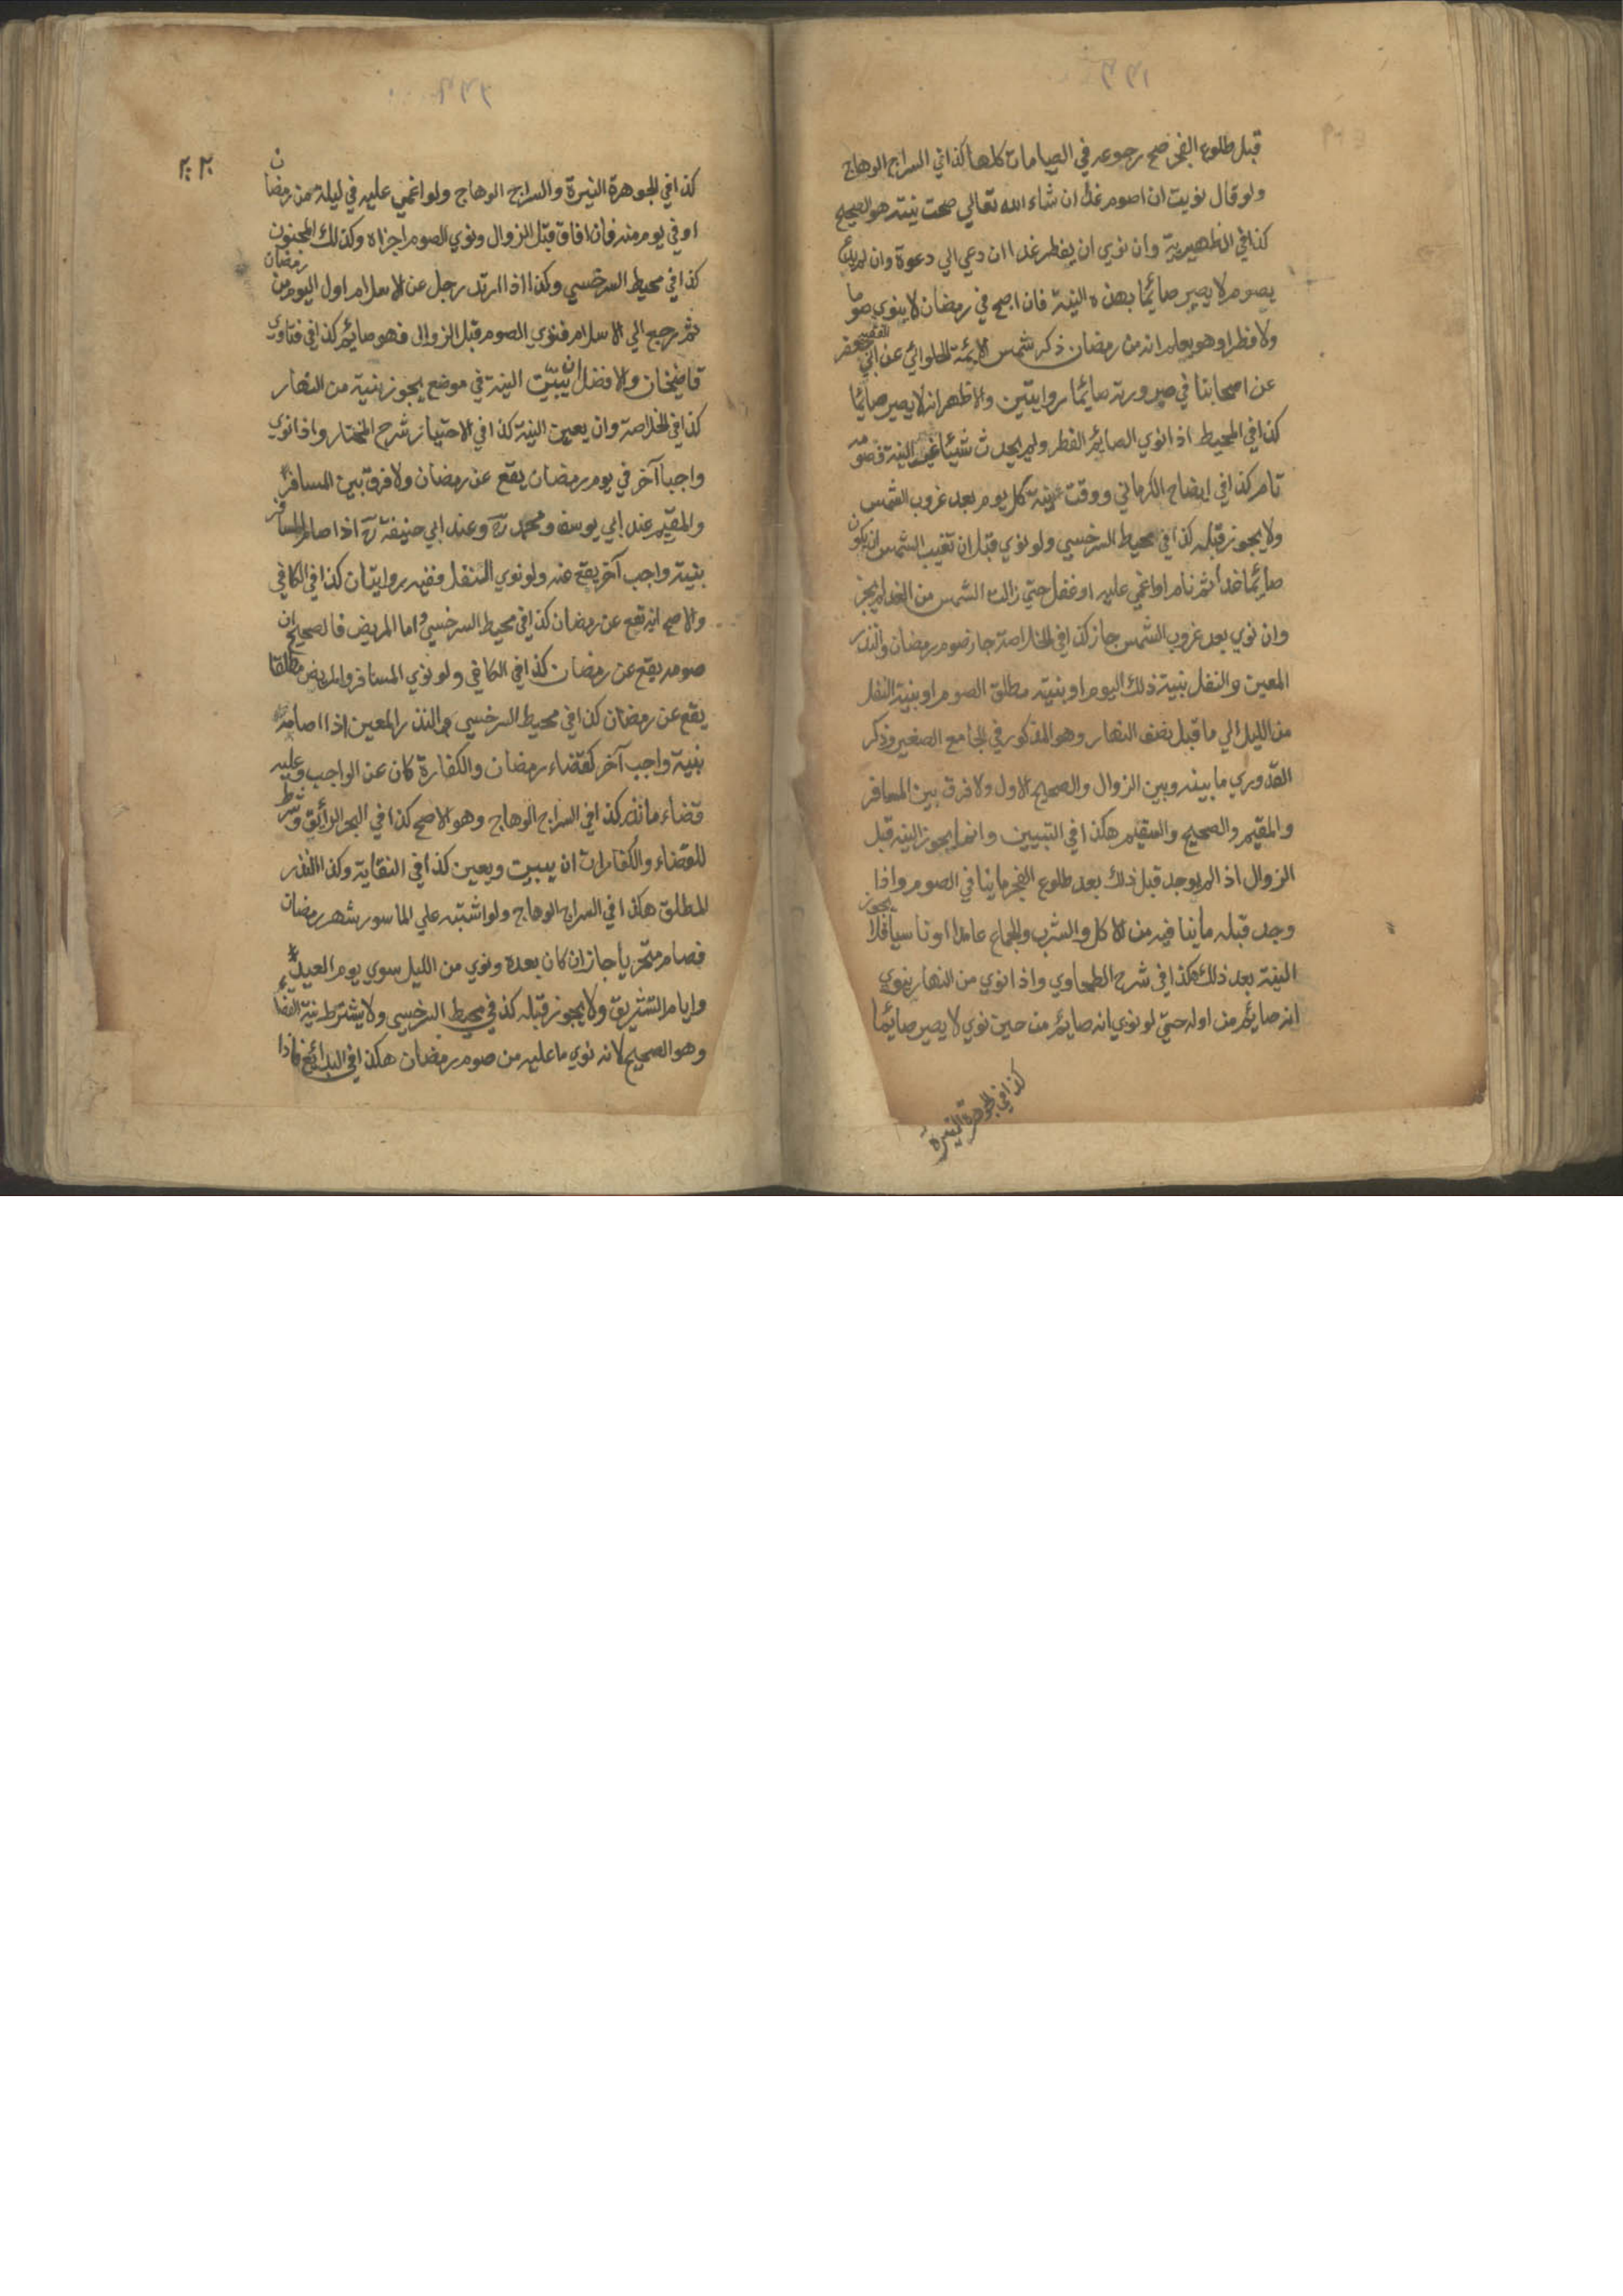 قبل طلوع الفجر صح رجوعه في الصيامات كلها كذا في السراج الوهاج
ولو قال نويت ان اصوم غدا ان شاء الله تعالي صحت نيته هو الصحيح
كذا في الظهيرية وان نوي ان يفطر غدا ان دعي الي دعوة وان لم يدع
يصوم لا يصير صائما بهذه النية فان اصبح في رمضان لا ينوي صوما
ولا فطرا وهو يعلم انه من رمضان ذكر شمس الايمة الحلوائي عن الفقيه ابي جعفر
عن اصحابنا في صيرورته صائما روايتين والاظهر انه لا يصير صائما
كذا في المحيط اذا نوي الصايم الفطر ولم يحدث شيئا غير النية فصومه
تام كذا في ايضاح الكرماني ووقت نية كل يوم بعد غروب الشمس
ولا يجوز قبله كذا في محيط السرخسي ولو نوي قبل ان تغيب الشمس ان يكون
صائما غدا ثم نام او اغمي عليه او غفل حتي زالت الشمس من الغد لم يجز
وان نوي بعد غروب الشمس جاز كذا في الخلاصة جاز صوم رمضان والنذر
المعين والنفل بنية ذلك اليوم او بنية مطلق الصوم او بنية النفل
من الليل الي ما قبل نصف النهار وهو المذكور في الجامع الصغير وذكر
القدوري ما بينه وبين الزوال والصحيح الاول ولا فرق بين المسافر
والمقيم والصحيح والسقيم هكذا في التبيين وانما يجوز النية قبل
الزوال اذا لم يوجد قبل ذلك بعد طلوع الفجر ما ينافي الصوم واذا
وجد قبله ما ينافيه من الاكل والشرب والجماع عامدا او ناسيا فلا يجوز
النية بعد ذلك هكذا في شرح الطحاوي واذا نوي من النهار ينوي
انه صايم من اوله حتي لو نوي انه صايم من حين نوي لا يصير صايما
كذا في الجوهرة النيرة
٢٠٢
كذا في الجوهرة النيرة والسراج الوهاج ولو اغمي عليه في ليلة من رمضان
او في يوم منه فان افاق قبل الزوال ونوي الصوم اجزاه وكذلك المجنون
كذا في محيط السرخسي وكذا اذا ارتد رجل عن الاسلام اول اليوم من رمضان
ثم رجع الي الاسلام فنوي الصوم قبل الزوال فهو صايم كذا في فتاوي
قاضيخان والافضل ان يبيّت النية في موضع يجوز بنية من النهار
كذا في الخلاصة وان يعين النية كذا في الاختيار شرح المختار واذا نوي
واجبا آخر في يوم رمضان يقع عن رمضان ولا فرق بين المسافر
والمقيم عند ابي يوسف ومحمد رح وعند ابي حنيفة رح اذا صام المسافر
بنية واجب آخر يقع عنه ولو نوي التنفل ففيه روايتان كذا في الكافي
والاصح انه يقع عن رمضان كذا في محيط السرخسي واما المريض فالصحيح ان
صومه يقع عن رمضان كذا في الكافي ولو نوي المسافر والمريض مطلقا
يقع عن رمضان كذا في محيط السرخسي والنذر المعين اذا صامه
بنية واجب آخر كقضاء رمضان والكفارة كان عن الواجب وعليه
قضاء ما نذر كذا في السراج الوهاج وهو الاصح كذا في البحر الرائق وشرط
للقضاء والكفارات ان يبيت ويعين كذا في النقاية وكذا النذر
المطلق هكذا في السراج الوهاج ولو اشتبه علي الماسور شهر رمضان
فصام متحريا جاز ان كان بعده ونوي من الليل سوي يوم العيد
وايام التشريق ولا يجوز قبله كذا في محيط السرخسي ولا يشترط نية القضاء
وهو الصحيح لانه نوي ما عليه من صوم رمضان هكذا في البدائع فاذا